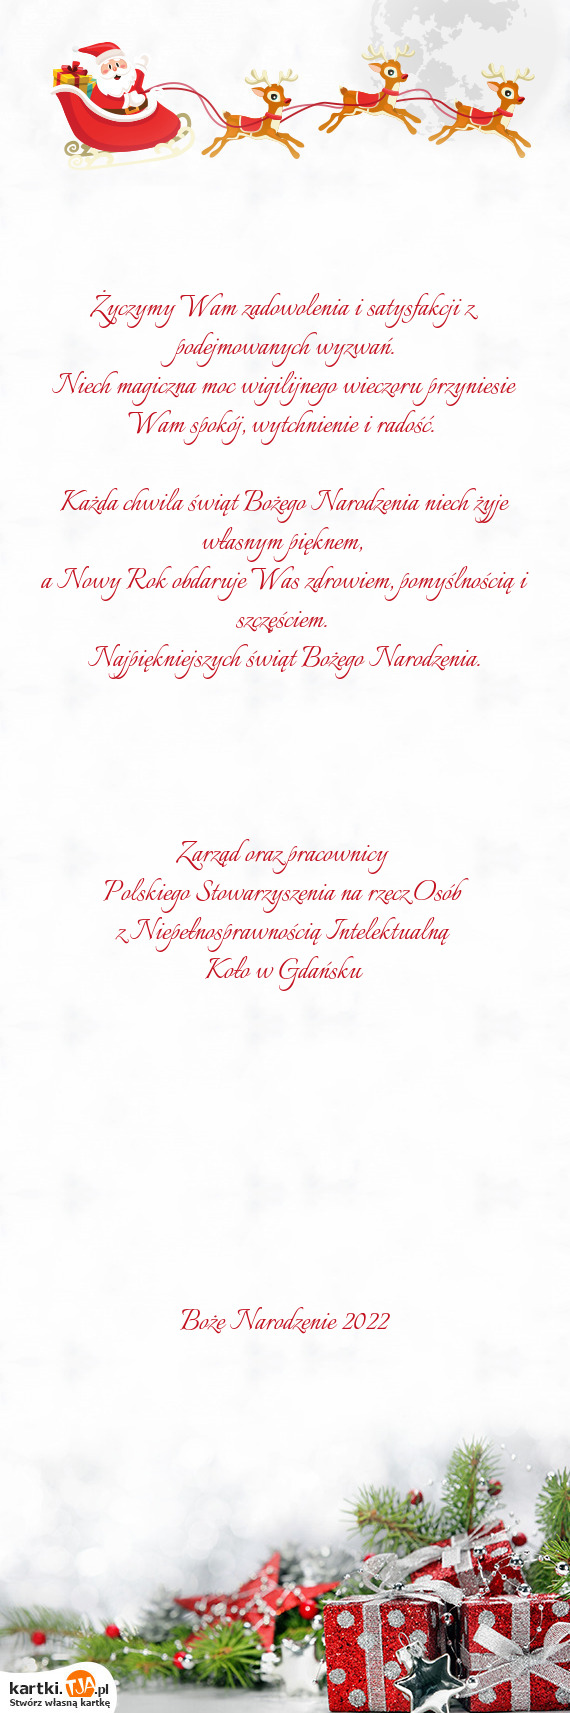 Życzymy Wam zadowolenia i satysfakcji z
podejmowanych wyzwań.
Niech magiczna moc wigilijnego wieczoru przyniesie
Wam spokój, wytchnienie i radość.
Każda chwila świąt Bożego Narodzenia niech żyje
własnym pięknem,
a Nowy Rok obdaruje Was zdrowiem, pomyślnością i
szczęściem.
Najpiękniejszych świąt Bożego Narodzenia.
Zarząd oraz pracownicy
Polskiego Stowarzyszenia na rzecz Osób
z Niepełnosprawnością Intelektualną
Koło w Gdańsku
Boże Narodzenie 2022
kartki.TJA.pl
Stwórz własną kartkę